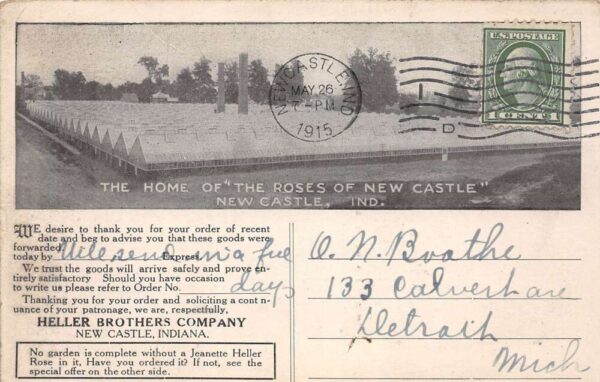 U.S. POSTAGE
1 CENT 1
NEW CASTLE, IND.
MAY 26
7-PM
1915
D
THE HOME OF "THE ROSES OF NEW CASTLE"
NEW CASTLE, IND.
WE desire to thank you for your order of recent
date and beg to advise you that these goods were
forwarded
today by Will send in a few Express
days
We trust the goods will arrive safely and prove en-
tirely satisfactory Should you have occasion
to write us please refer to Order No.
Thanking you for your order and soliciting a cont n-
uance of your patronage, we are, respectfully,
HELLER BROTHERS COMPANY
NEW CASTLE, INDIANA.
No garden is complete without a Jeanette Heller
Rose in it, Have you ordered it? If not, see the
special offer on the other side.
O. N. Boothe
133 Calvert ave
Detroit
Mich